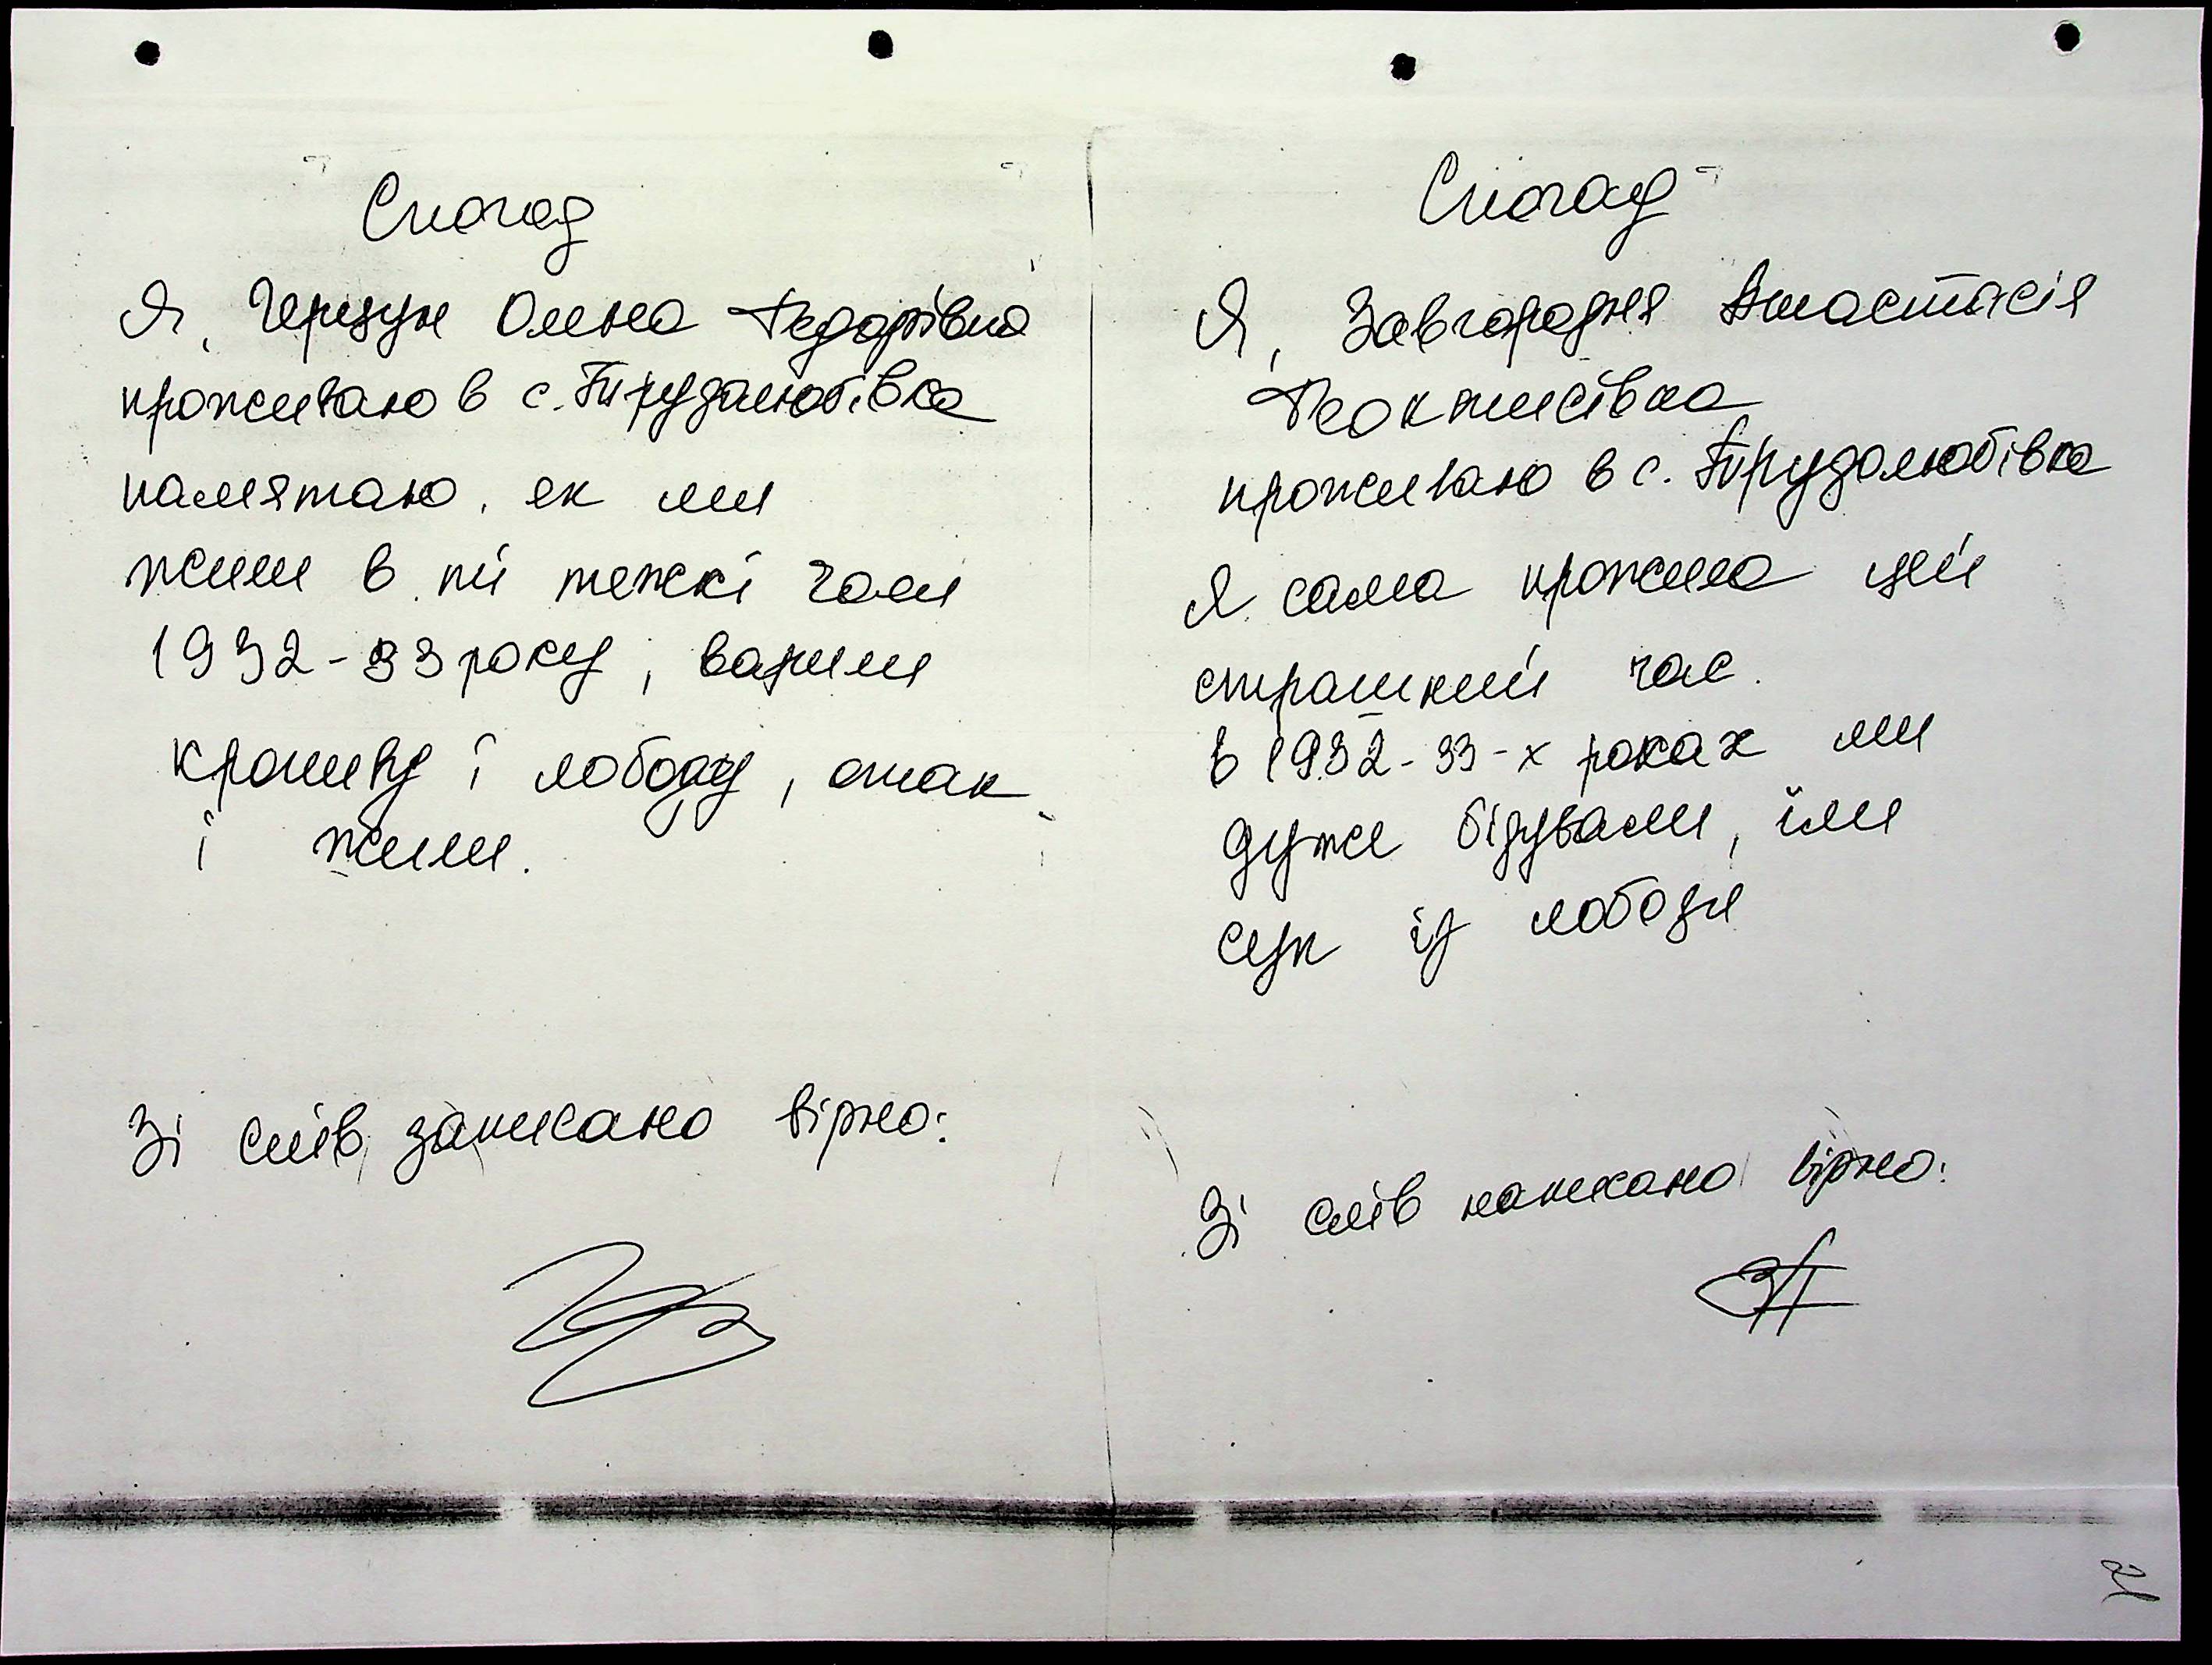 Спогад
Я, Черзун Олена Федорівна
проживаю в с. Трудолюбівка
памятаю, як ми
жили в ті тежкі часи
1932-33 року, варили
кропиву і лободу, отак
і жили.
Зі слів записано вірно:
Спогад
Я, Завгородня Анастасія
Феоктисівна
проживаю в с. Трудолюбівка
Я сама прожила цей
страшний час.
в 1932-33-х роках ми
дуже бідували, їли
суп із лободи
Зі слів написано вірно:
21